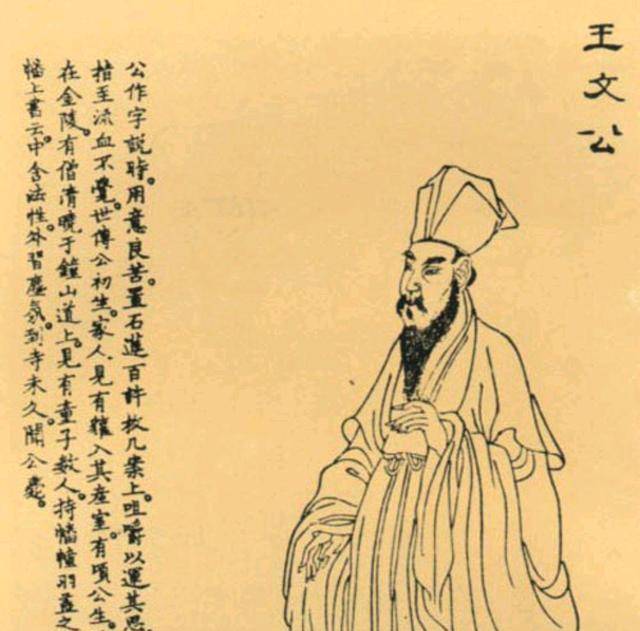 王文公
公作字說時。用意良苦。置石蓮百許枚几案上。咀嚼以運其思。
指至流血不覺。世傳公初生。家人見有獾入其產室。有頃公生。
在金陵。有僧清曉于鐘山道上。見有童子數人。持幡幢羽蓋之
幡上書云。中含法性。外習塵氛。到寺未久。聞公薨。